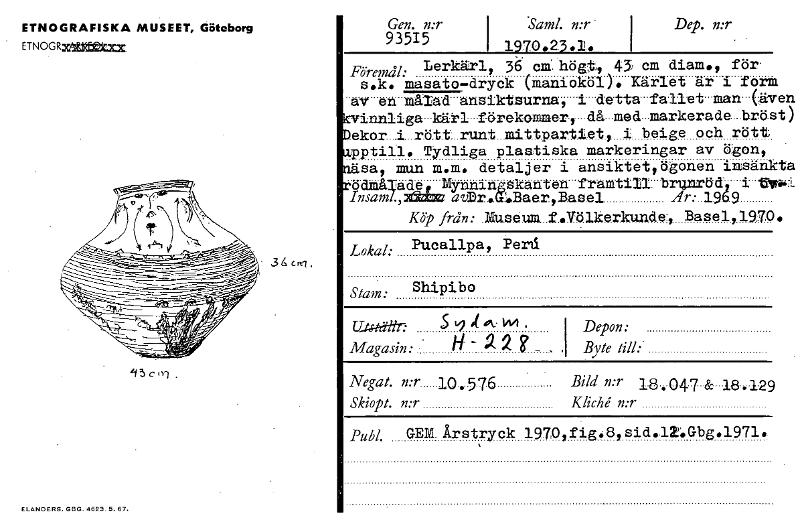 ETNOGRAFISKA MUSEET, Göteborg
ETNOGR.
36 cm.
43 cm.
ELANDERS. GBG. 4623. 5. 67.
Gen. n:r Saml. n:r Dep. n:r
93515 1970.23.1.
Föremål: Lerkärl, 36 cm högt, 43 cm diam., för
s.k. masato-dryck (maniokööl). Kärlet är i form
av en målad ansiktsurna, i detta fallet man (även
kvinnliga kärl förekommer, då med markerade bröst)
Dekor i rött runt mittpartiet, i beige och rött
upptill. Tydliga plastiska markeringar av ögon,
näsa, mun m.m. detaljer i ansiktet, ögonen insänkta
rödmålade. Mynningskanten framtill brunröd, i
Insaml. av Dr.G.Baer, Basel År: 1969
Köp från: Museum f.Völkerkunde, Basel, 1970.
Lokal: Pucallpa, Perú
Stam: Shipibo
Utställt: Sydam. Depon:
Magasin: H-228 Byte till:
Negat. n:r 10.576 Bild n:r 18.047 & 18.129
Skiopt. n:r Kliché n:r
Publ. GEM Årstryck 1970, fig.8, sid.12. Gbg.1971.